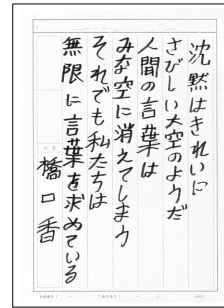 沈黙はきれいに
さびしい大空のようだ
人間の言葉は
みな空に消えてしまう
それでも私たちは
無限に言葉を求めている
橋口香